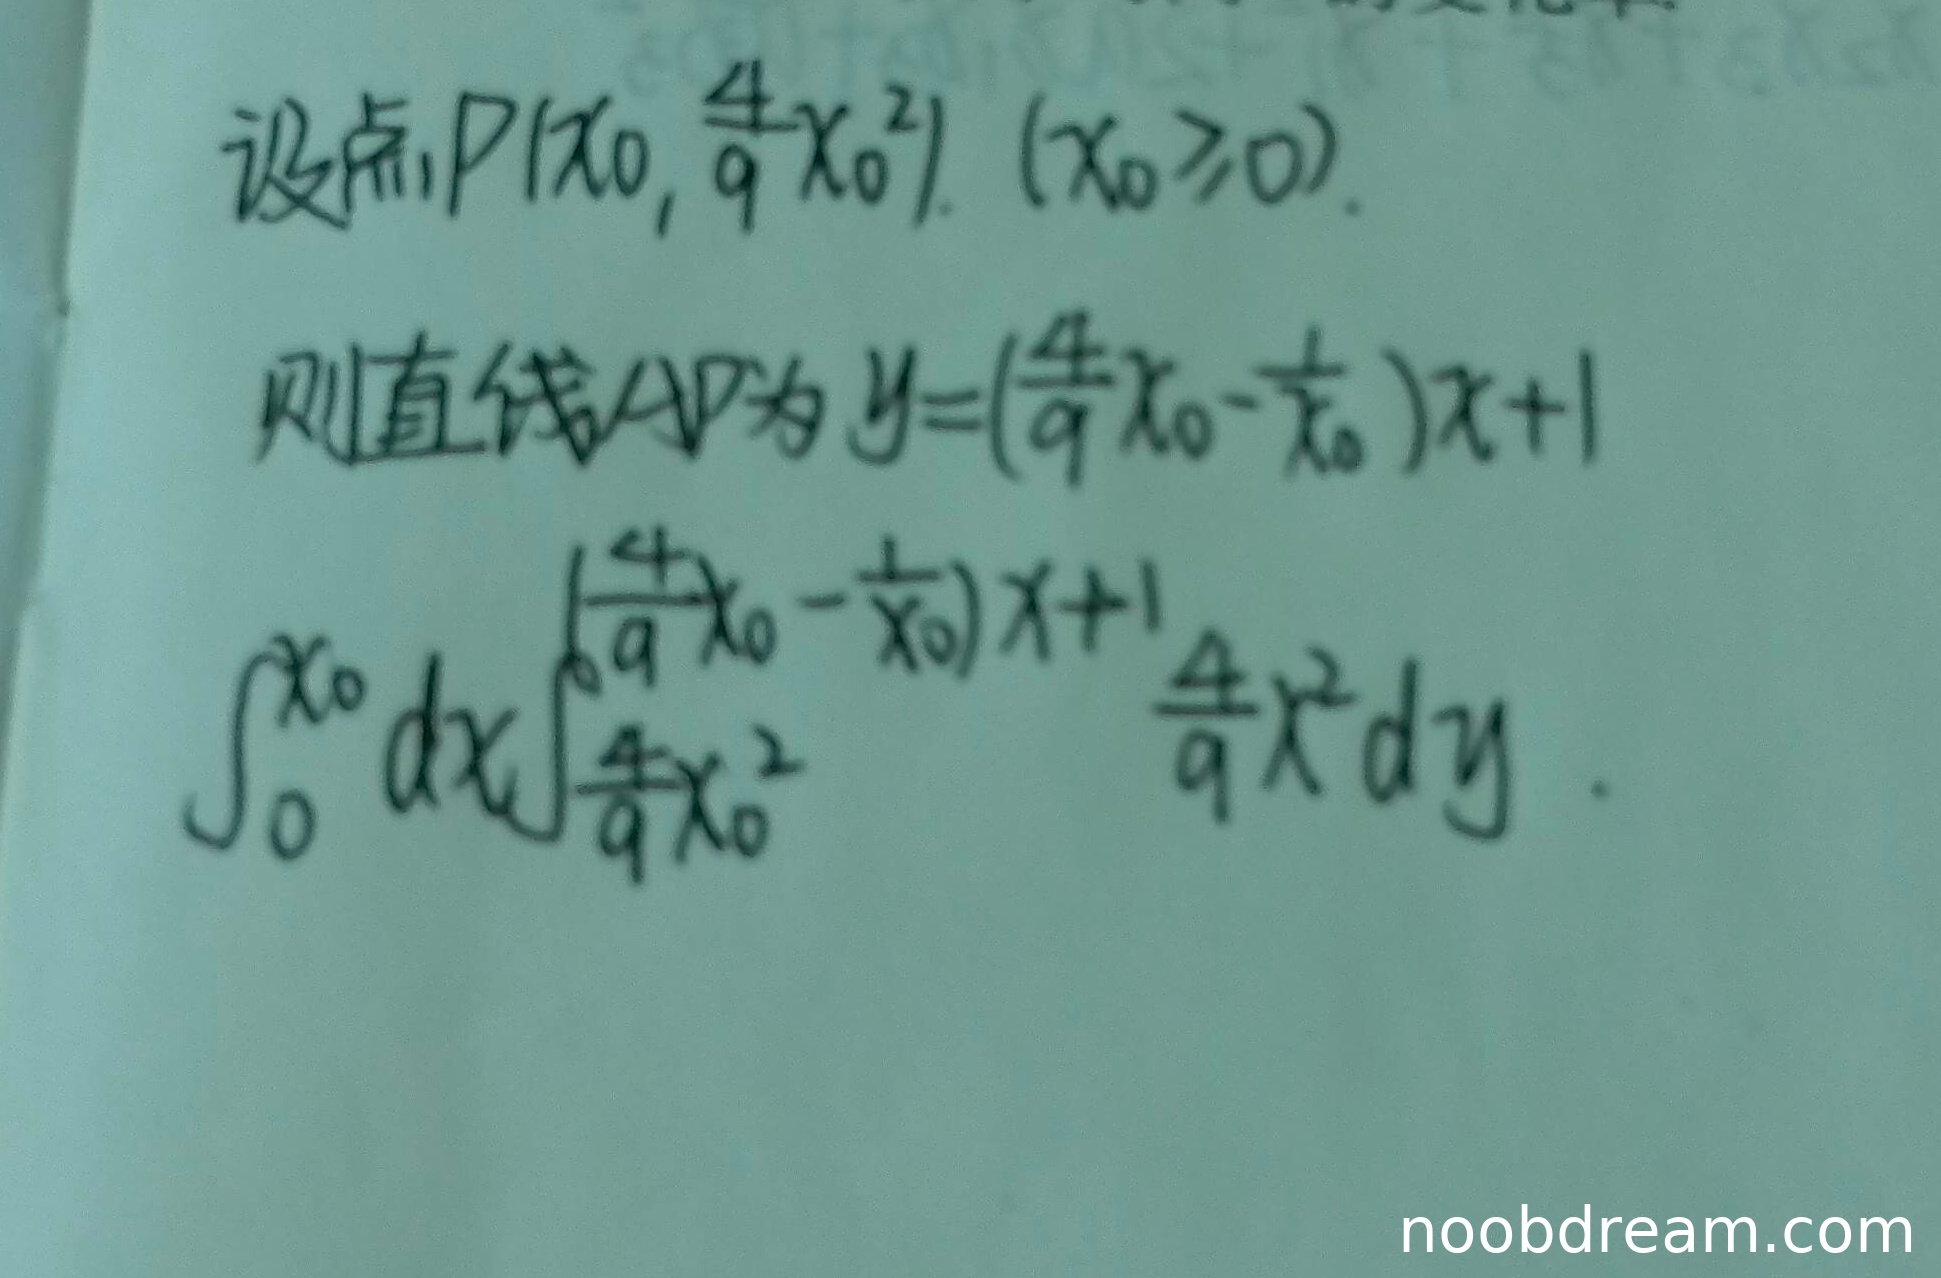 设点P(x₀, 4/9 x₀²). (x₀≥0).
则直线AP为 y=(4/9 x₀ - 1/x₀)x+1
∫₀^{x₀} dx ∫_{4/9 x₀²}^{(4/9 x₀ - 1/x₀)x+1} 4/9 x² dy.
noobdream.com